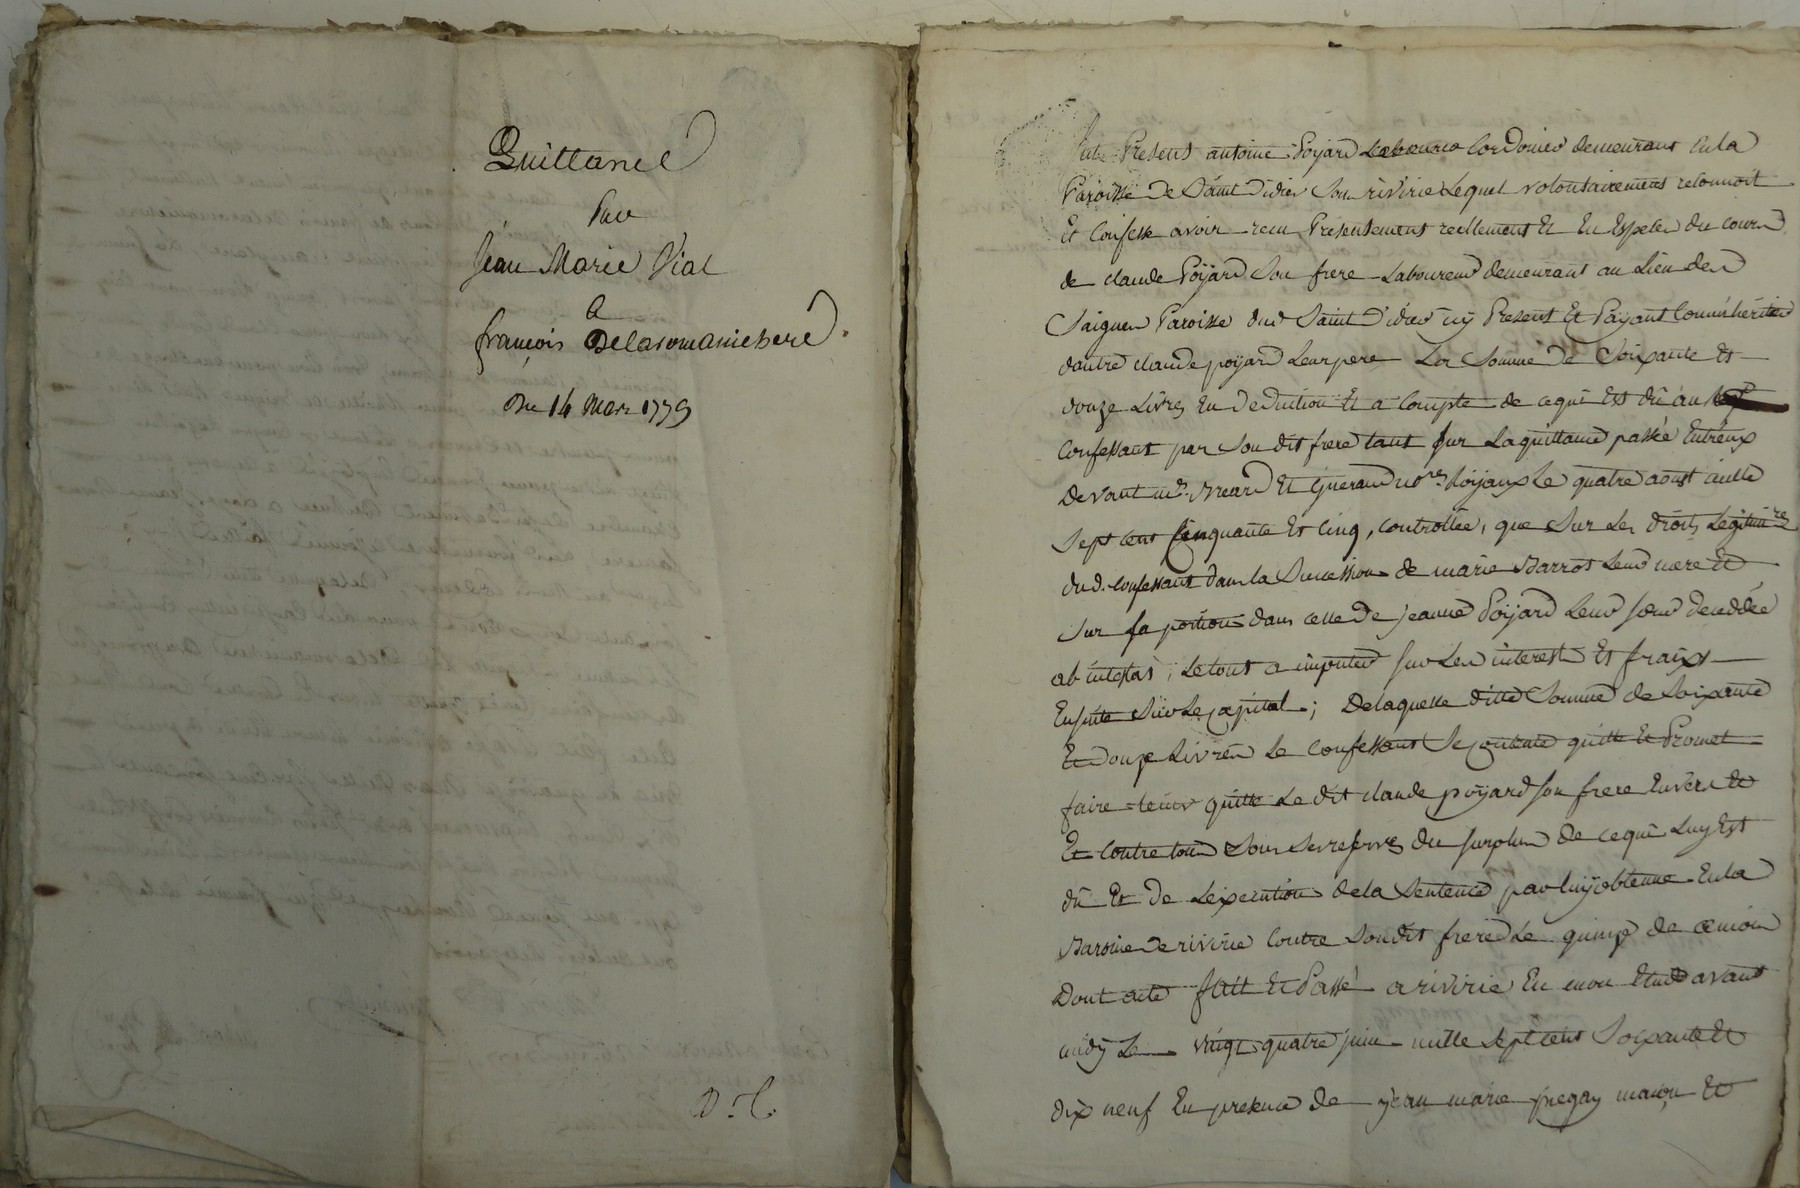 Quittance
Par
Jean Marie Vial
a
françois Delaromanichere
Du 14 Mars 1779
D. C.
fut Présent antoine Poyard Cordonier demeurant en la
Paroisse de Saint Didier Sous rivirie Lequel volontairement reconnoit
Et Confesse avoir recu Présentement reellement Et En Espèces du cours
de claude Poÿard Son frere Laboureur demeurant au Lieu de
Paroisse dud Saint Didier icÿ Present Et Paÿant Comme héritier
dautre claude poÿard Leur pere La Somme de Soixante Et
douze Livres En Deduction Et a Compte de ce qui Est dû au
Confessant par Son dit frere tant sur La quittance passée Entreux
Devant me. Et Gueraud nores. Roÿaux Le quatre aoust mille
Sept cent Cinquante Et Cinq, Controllée, que Sur Les droits Legitimaires
dud. Confessant dans la Succession de marie Barrot Leur mere Et
Sur sa portion dans celle de Jeanne Poÿard Leur sœur decedée
ab intestat ; Le tout a imputer sur Les interests Et fraix
Ensuite Sur Le Capital ; De laquelle ditte Somme de Soixante
Et Douze Livres Le Confessant Se Contente quitte Et Promet
faire tenir quitte Le dit claude poÿard son frere Envers Et
Et Contre tous Sous Ses reserves du surplus de ce qui Luy Est
dû Et de L'Execution de la Sentence par luÿ obtenue En la
Baronie de riviries Contre Son dit frere Le quinze de ce mois
Dont acte fait Et Passé a riviries En mon Etude avant
midÿ Le vingt quatre juin mille Sept cent Soixante Et
dix neuf En presence de jean marie maçon Et